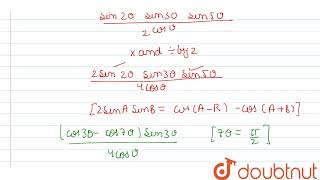 sin 2θ sin 5θ sin 5θ
2 cosθ
x and ÷ by 2
2 sin 2θ sin 3θ sin 5θ
4 cosθ
[2 sin A sin B = cos (A-B) - cos (A+B)]
(cos 3θ - cos 7θ) sin 3θ [7θ = π/2]
4 cosθ
doubtnut